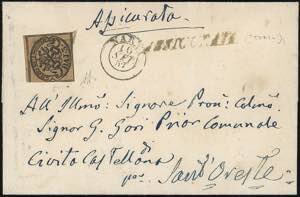 Assicurata
NARNI
16
SET
57
ASSICURATA
All' Illmo: Signore Pron: Colmo:
Signor G. Gori Prior Comunale
di
Civita Castellana
per Sant' Oreste